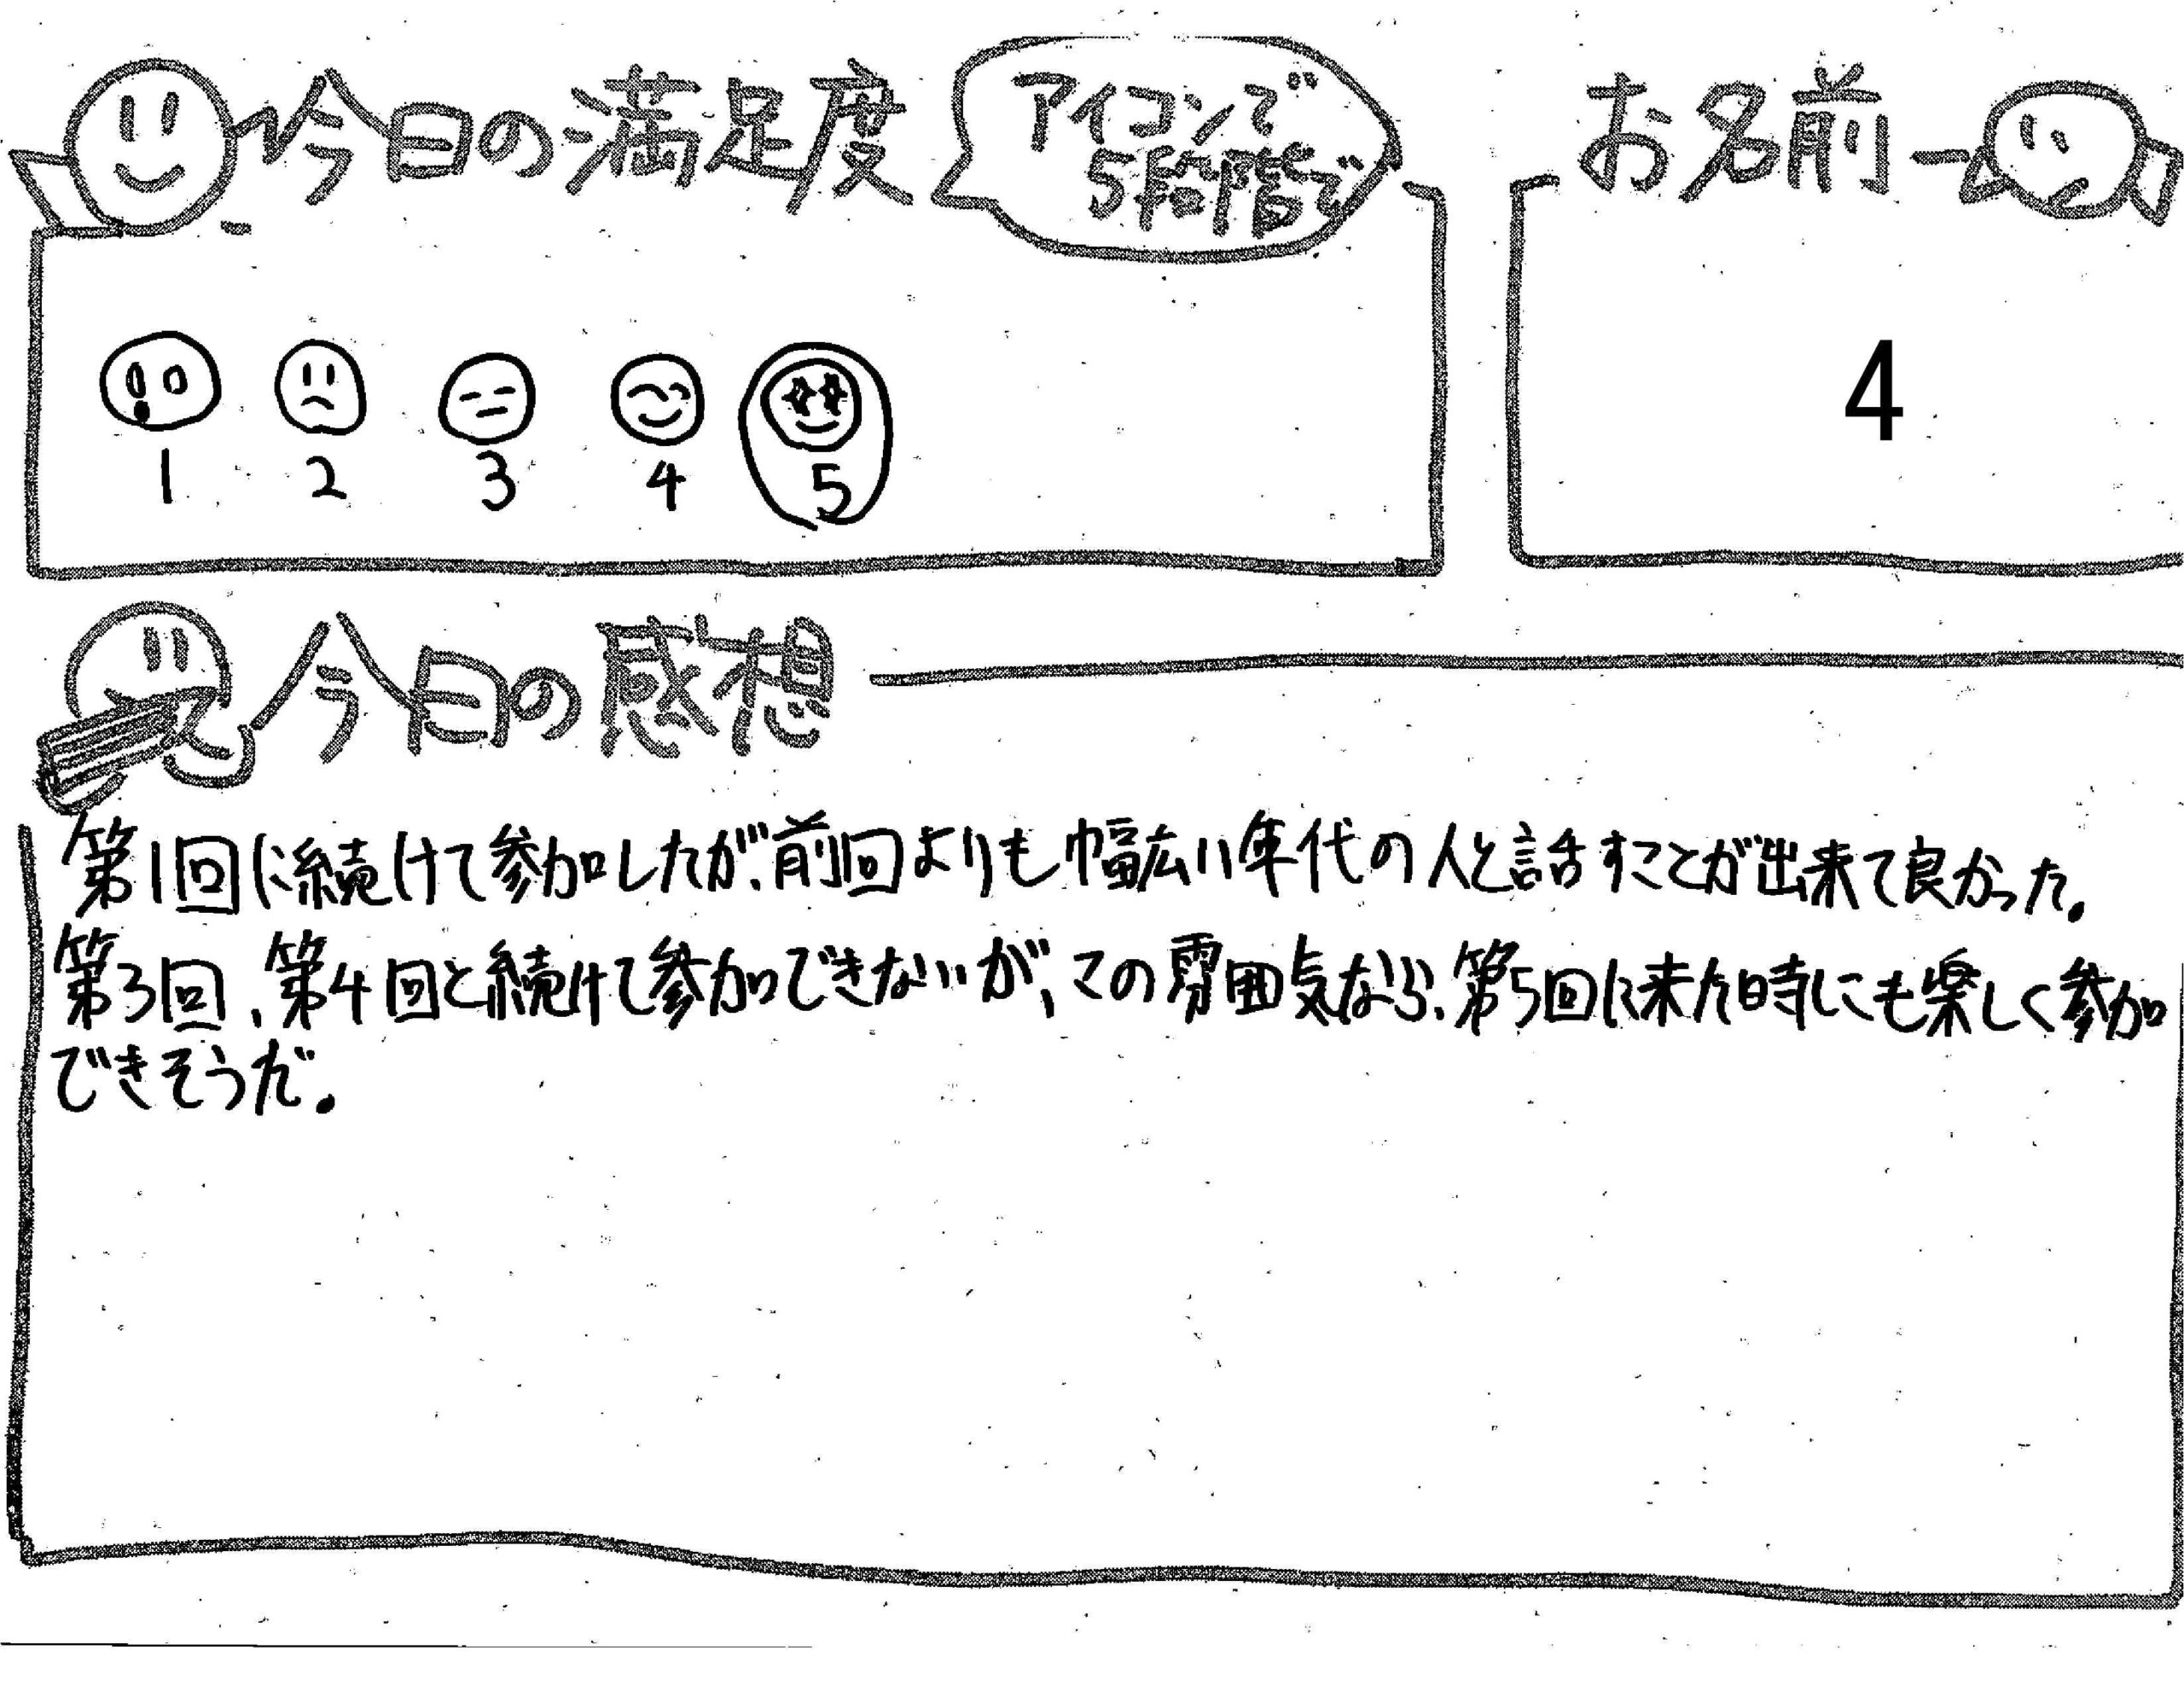 今日の満足度
アイコンで
5段階で
お名前
4
1 2 3 4 5
今日の感想
第1回に続けて参加したが、前回よりも幅広い年代の人と話すことが出来て良かった。
第3回、第4回と続けて参加できないが、この雰囲気なら、第5回に来た時にも楽しく参加
できそうだ。